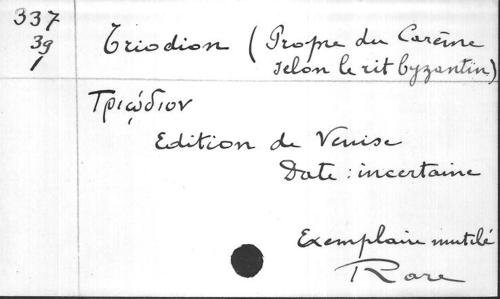 337
39
1
Triodion (Propre du Carême
selon le rit byzantin)
Τριῴδιον
Edition de Venise
Date : incertaine
Exemplaire mutilé
Rare